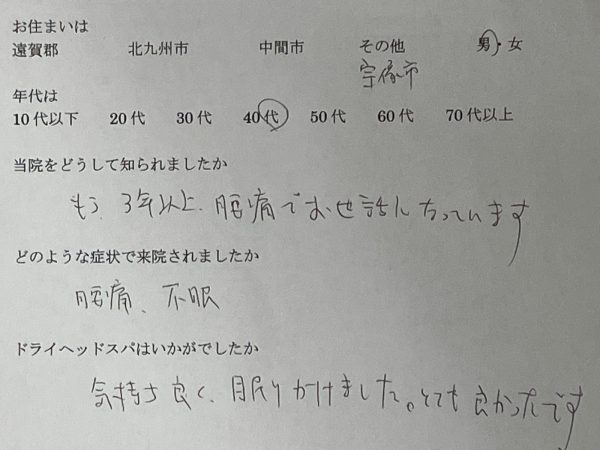 お住まいは
遠賀郡 北九州市 中間市 その他 男・女
宗像市
年代は
10代以下 20代 30代 40代 50代 60代 70代以上
当院をどうして知られましたか
もう、3年以上、腰痛でお世話になっています
どのような症状で来院されましたか
腰痛、不眠
ドライヘッドスパはいかがでしたか
気持ち良く、眠りかけました。とても良かったです